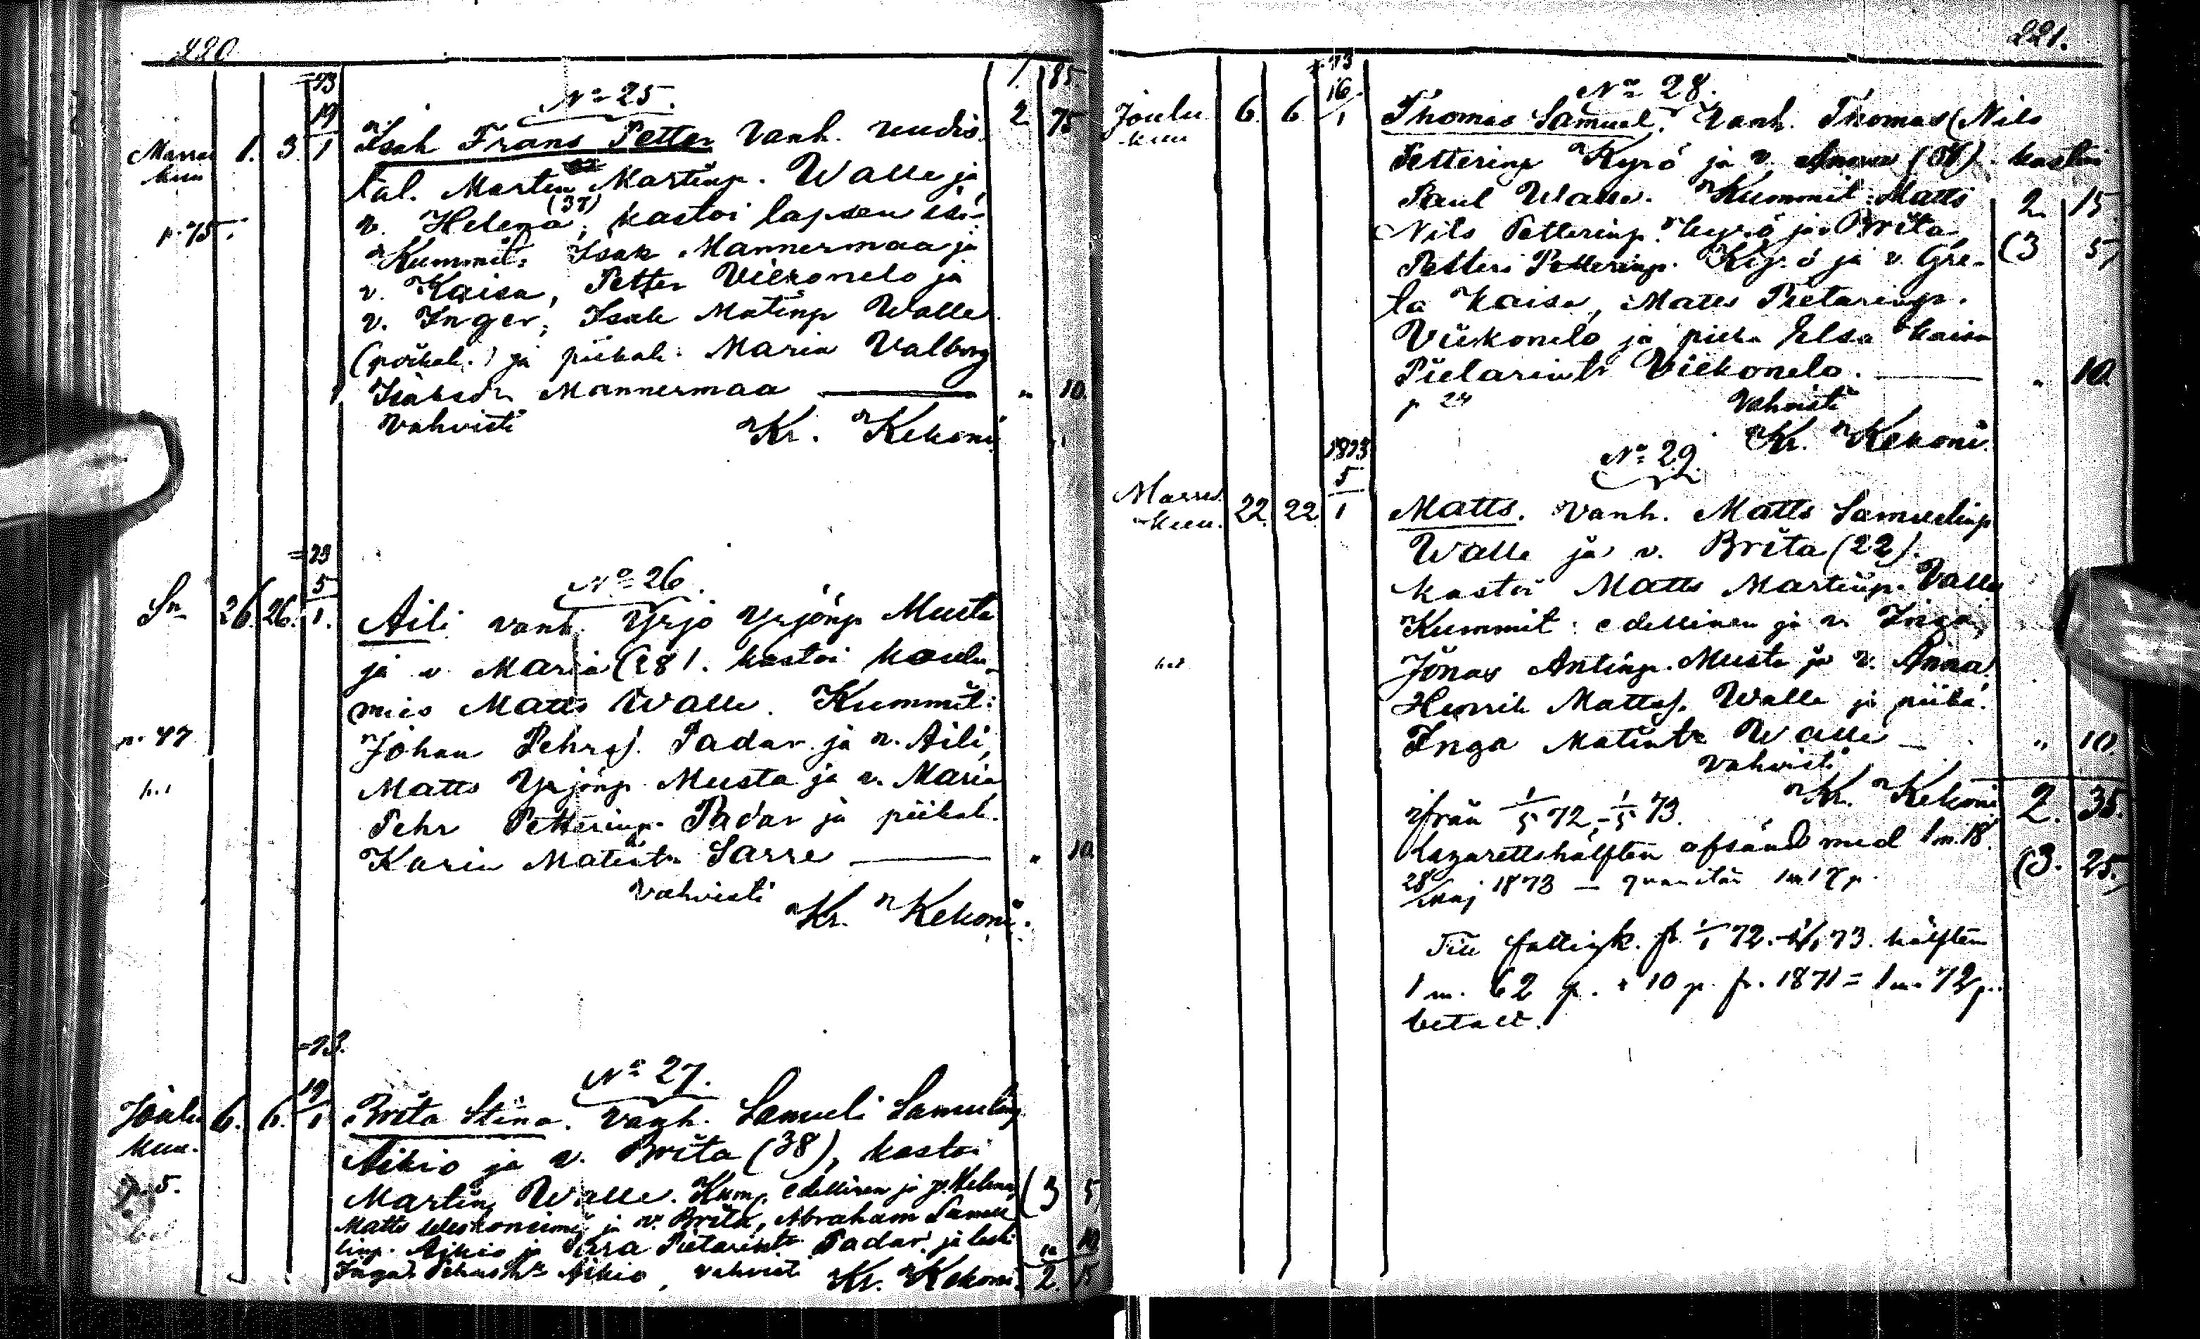 220
=73
1. 85
No 25.
19
Marras kuu 1. 3. 1 Isak Frans Petter Vanh. uudis 2 75
tal. Marten Martinp. Walle ja
(37)
v. Helena, kastoi lapsen isä.
p. 75.
Kummit: Isak Mannermaa ja
v. Kaisa, Petter Viekonelo ja
v. Inger, Isak Matinp Walle
(poikal.) ja piikal: Maria Valborg
Isaksdr Mannermaa — " 10.
Vahvisti Kr. Kekoni
=73
No 26.
5
Sn 26. 26. 1. Aili vanh. Yrjö Yrjönp Musta
ja v Maria (28). kastoi koulu
mies Matts Walle. Kummit:
p. 47
Johan Pehrs. Padar ja v. Aili,
Matts Yrjönp Musta ja v. Maria
Pehr Petterinp. Padar ja piikal.
Karin Matintr Sarre — " 10
Vahvisti
Kr. Kekoni.
=73.
No 27.
19
Joulu kuu. 6. 6. 1 Brita Stina. Vanh. Samuli Samulinp
Aikio ja v. Brita (38), kastoi
p. 5.
Martin Walle. Kum. edellinen ja v. Helena, (3 5)
Matts ja v. Brita, Abraham Samu
linp. Aikio ja Pietarintr Padar ja leski
Inga Aikio, vahvisti Kr. Kekoni. 2. 15
221.
=73
No 28.
16
Joulu kuu 6. 6. 1 Thomas Samuel. Vanh. Thomas (Nils
Petterinp Kyrö ja v. kastoi
Paul Walle. Kummit: Matts 2. 15.
Nils Petterinp. Kyrö ja Brita
Petteri Petterinp. Kyrö ja v. Gre- (3 5)
ta Kaisa, Matts Pietarinp.
Viekonelo ja piika Elsa Kaisa
Pietarintr Viekonelo. — " 10.
p 24 Vahvisti
Kr. Kekoni.
1873
No 29.
5
Marras kuu. 22. 22. 1 Matts. Vanh. Matts Samuelinp
Walle ja v. Brita (22).
kastoi Matts Martinp. Valle
Kummit: edellinen ja v. Inga,
Jonas Antinp. Musta ja v. Anna
Henrik Mattss. Walle ja piika.
Inga Matintr Walle — " 10
Vahvisti
Kr. Kekoni 2. 35.
ifrån 1/5 72,-1/5 73.
Lazarettshälften afsänd med 1 m. 18. (3. 25.)
28/maj 1873 —
Till fattigk. fr. 72.- 73. hälften
1 m. 62 p. + 10 p. fr. 1871 = 1 m. 72 p.
betalt.